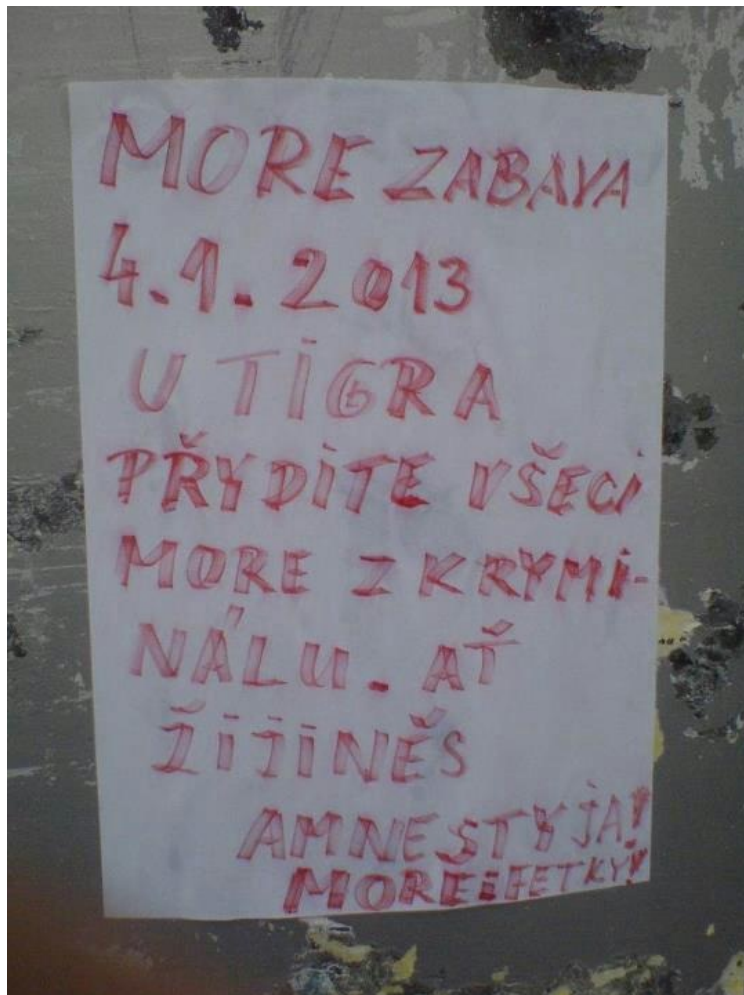 MORE ZABAVA
4.1.2013
U TIGRA
PŘYDITE VŠECI
MORE Z KRYMI-
NÁLU. AŤ
ŽIJINĚS
AMNESTYJA!
MORE i FETKY!